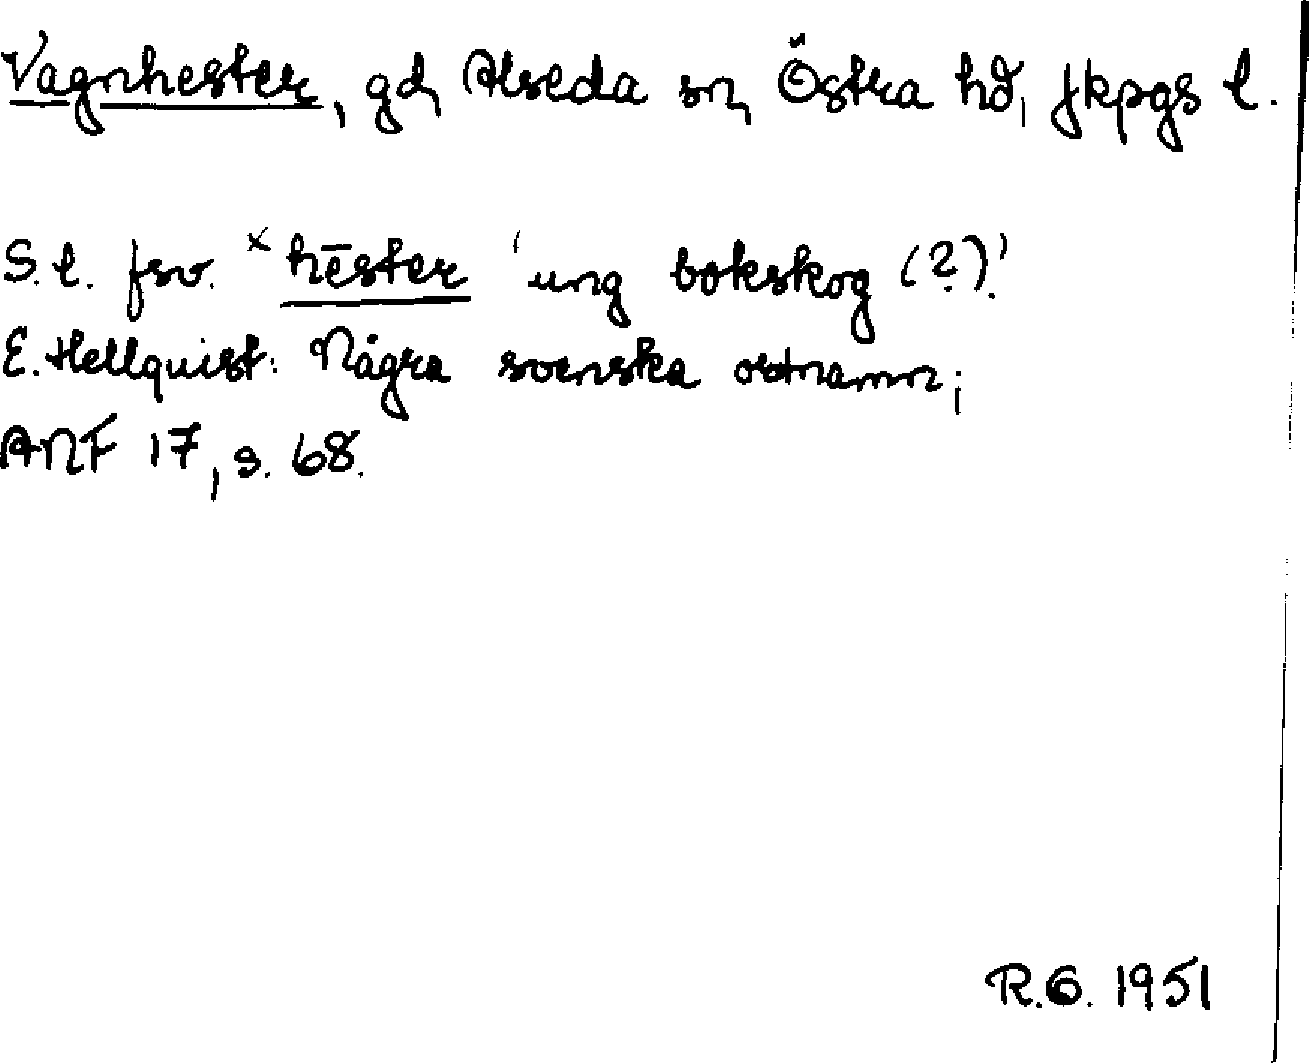 Vagnhester, gd, Alseda sn, Östra hd, Jkpgs l.
S.l. fsv. *hēster 'ung bokskog (?)'.
E. Hellquist: Några svenska ortnamn;
ANF 17, s. 68.
R.G. 1951